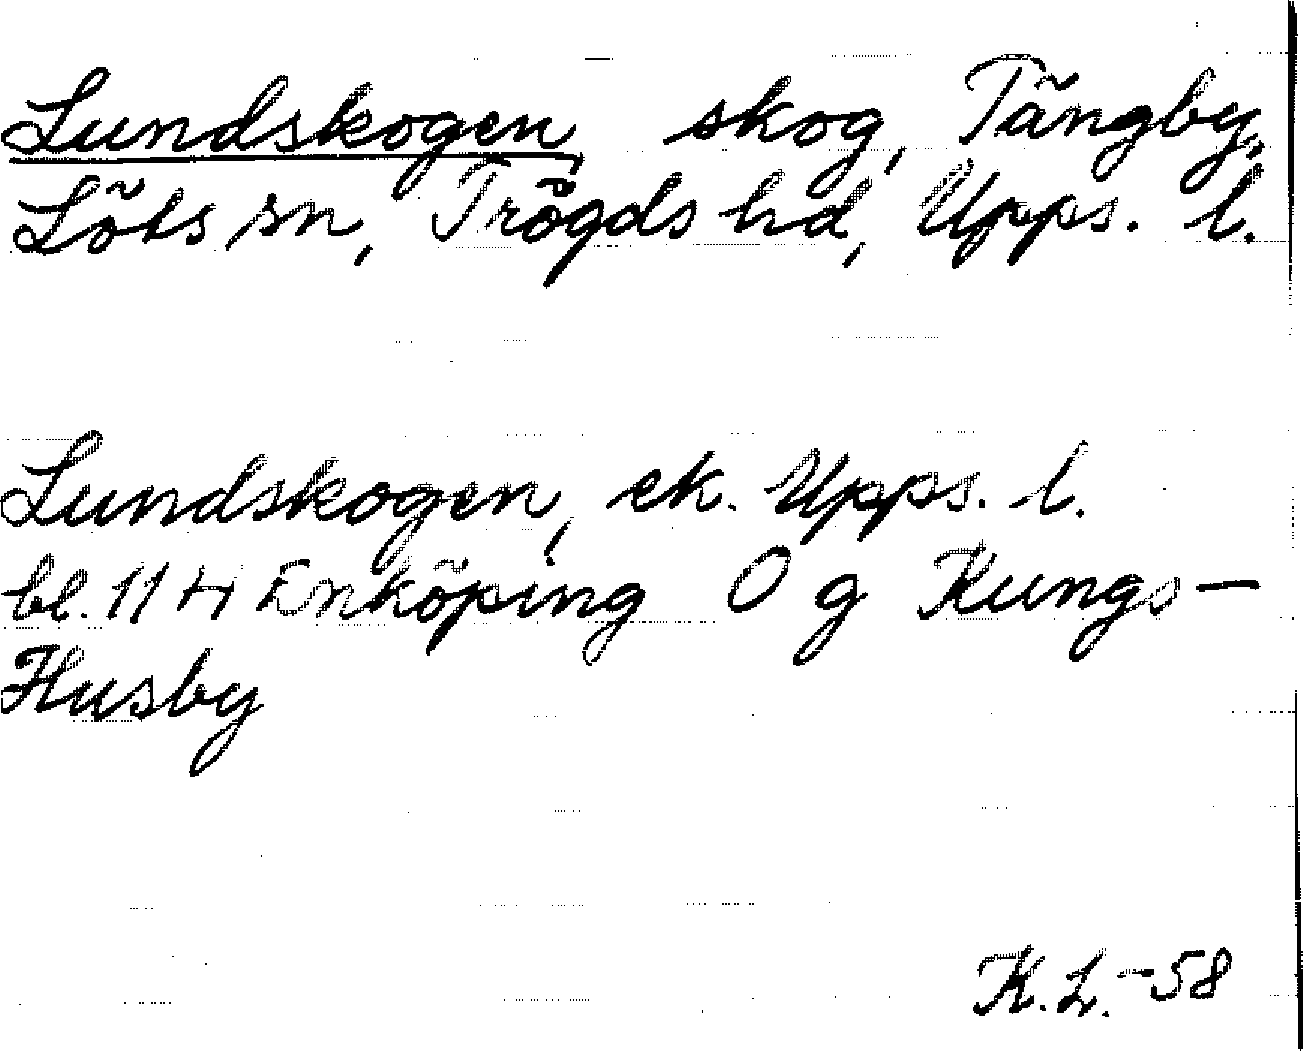 Lundskogen, skog, Tängby,
Löts sn, Trögds hd, Upps. l.
Lundskogen, ek. Upps. l.
bl. 11 H Enköping O g Kungs-
Husby
K.L.-58